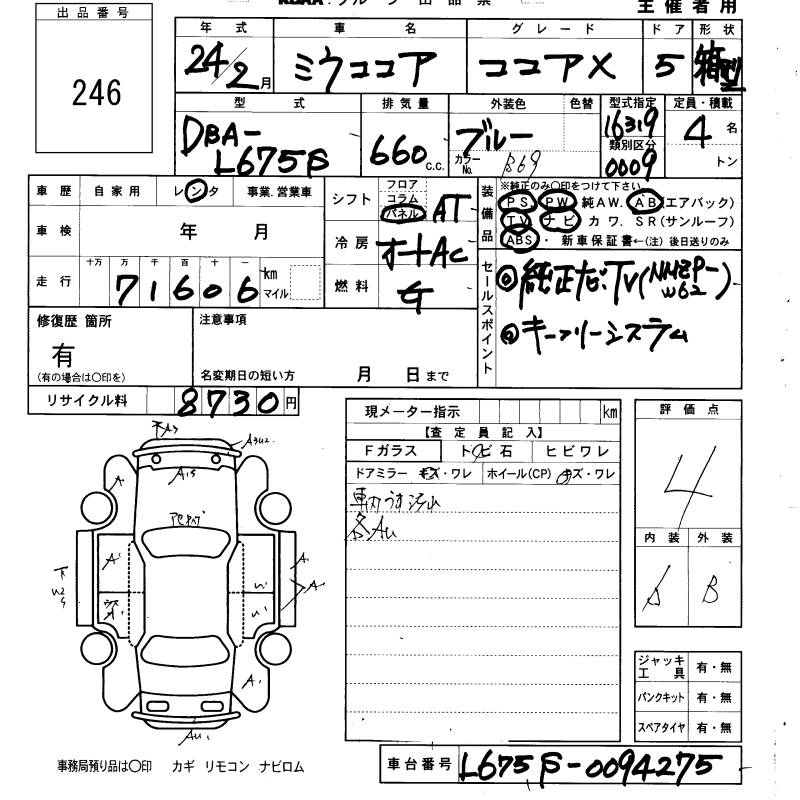 出品番号
246
主催者用
年式 車名 グレード ドア 形状
24/2月 ミラココア ココアX 5 箱型
型式 排気量 外装色 色替 型式指定 定員・積載
DBA-
L675S
660 c.c.
ブルー
カラーNo. B69
16319
類別区分
0009
4 名
トン
車歴 自家用 レンタ 事業.営業車
車検 年 月
走行 十万 万 千 百 十 一 km
71606 マイル
シフト フロア コラム パネル AT
冷房 オートAC
燃料 ガ
装備品
※純正のみ〇印をつけて下さい
PS PW 純AW. AB(エアバック)
TV ナビ カワ. SR(サンルーフ)
ABS ・ 新車保証書←(注) 後日送りのみ
セールスポイント
◎純正ナビ.TV(NHZP-W62)
◎キーフリーシステム
修復歴 箇所
有
(有の場合は〇印を)
注意事項
名変期日の短い方 月 日まで
リサイクル料 8730円
現メーター指示 km
【査定員記入】
Fガラス トビ石 ヒビワレ
ドアミラー キズ・ワレ ホイール(CP) キズ・ワレ
車内うす汚れ
各AU
評価点
4
内装 外装
A B
ジャッキ 工具 有・無
パンクキット 有・無
スペアタイヤ 有・無
事務局預り品は〇印 カギ リモコン ナビロム
車台番号 L675S-0094275